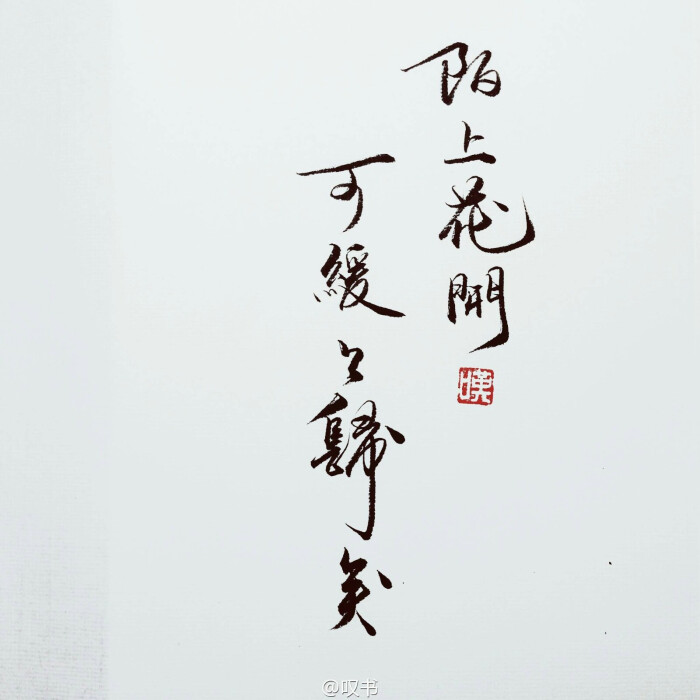 陌上花開
可緩〻歸矣
嘆
@叹书